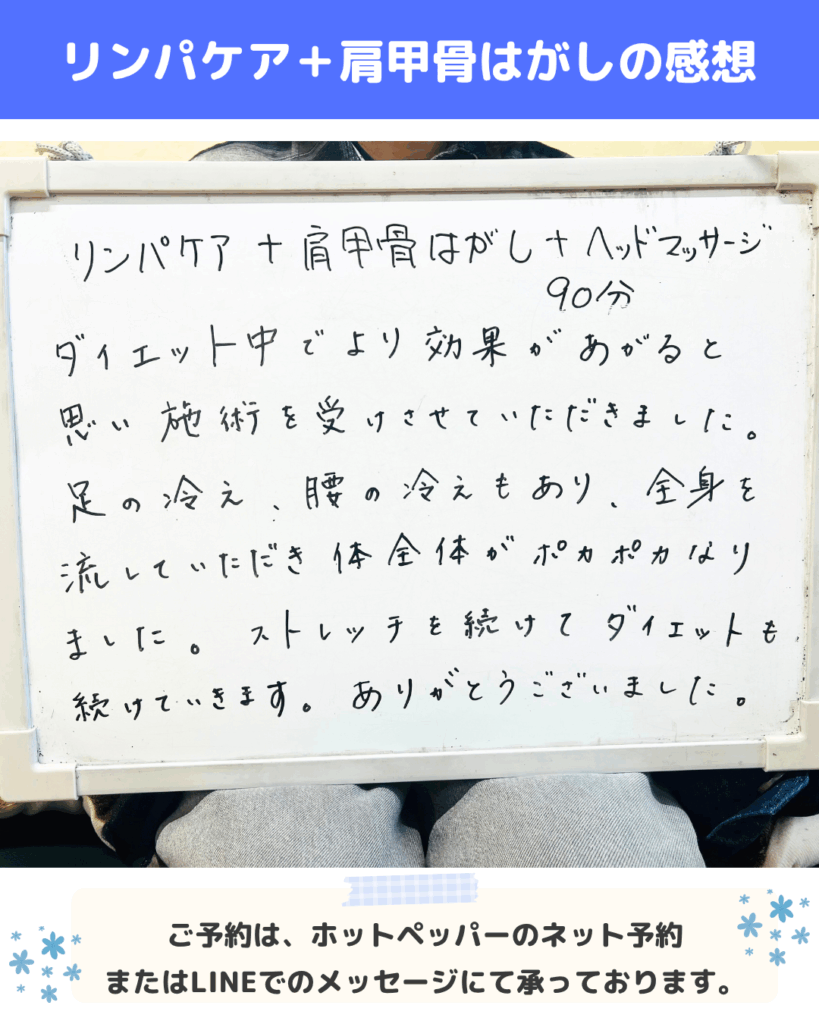 リンパケア＋肩甲骨はがしの感想
リンパケア＋肩甲骨はがし＋ヘッドマッサージ
90分
ダイエット中でより効果があがると
思い施術を受けさせていただきました。
足の冷え、腰の冷えもあり、全身を
流していただき体全体がポカポカなり
ました。ストレッチを続けてダイエットも
続けていきます。ありがとうございました。
ご予約は、ホットペッパーのネット予約
またはLINEでのメッセージにて承っております。